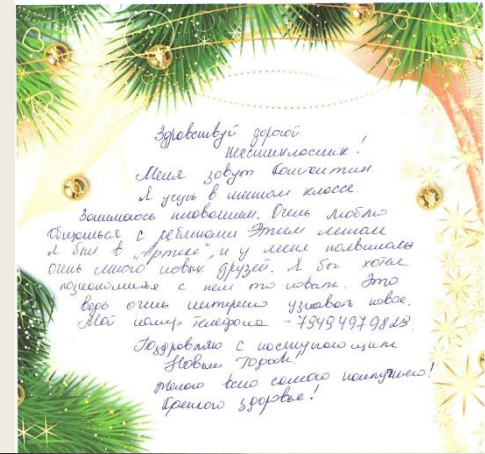 Здравствуй дорогой
шестиклассник!
Меня зовут Константин.
Я учусь в шестом классе.
Занимаюсь плаванием. Очень люблю
общаться с ребятами Этим летом
я был в "Артеке", и у меня появились
очень много новых друзей. Я бы хотел
познакомится с кем то новым. Это
ведь очень интересно узнавать новое.
Мой номер телефона -
Поздравляю с наступающим
"Новым Годом"
Желаю всего самого наилучшего!
Крепкого здоровья!